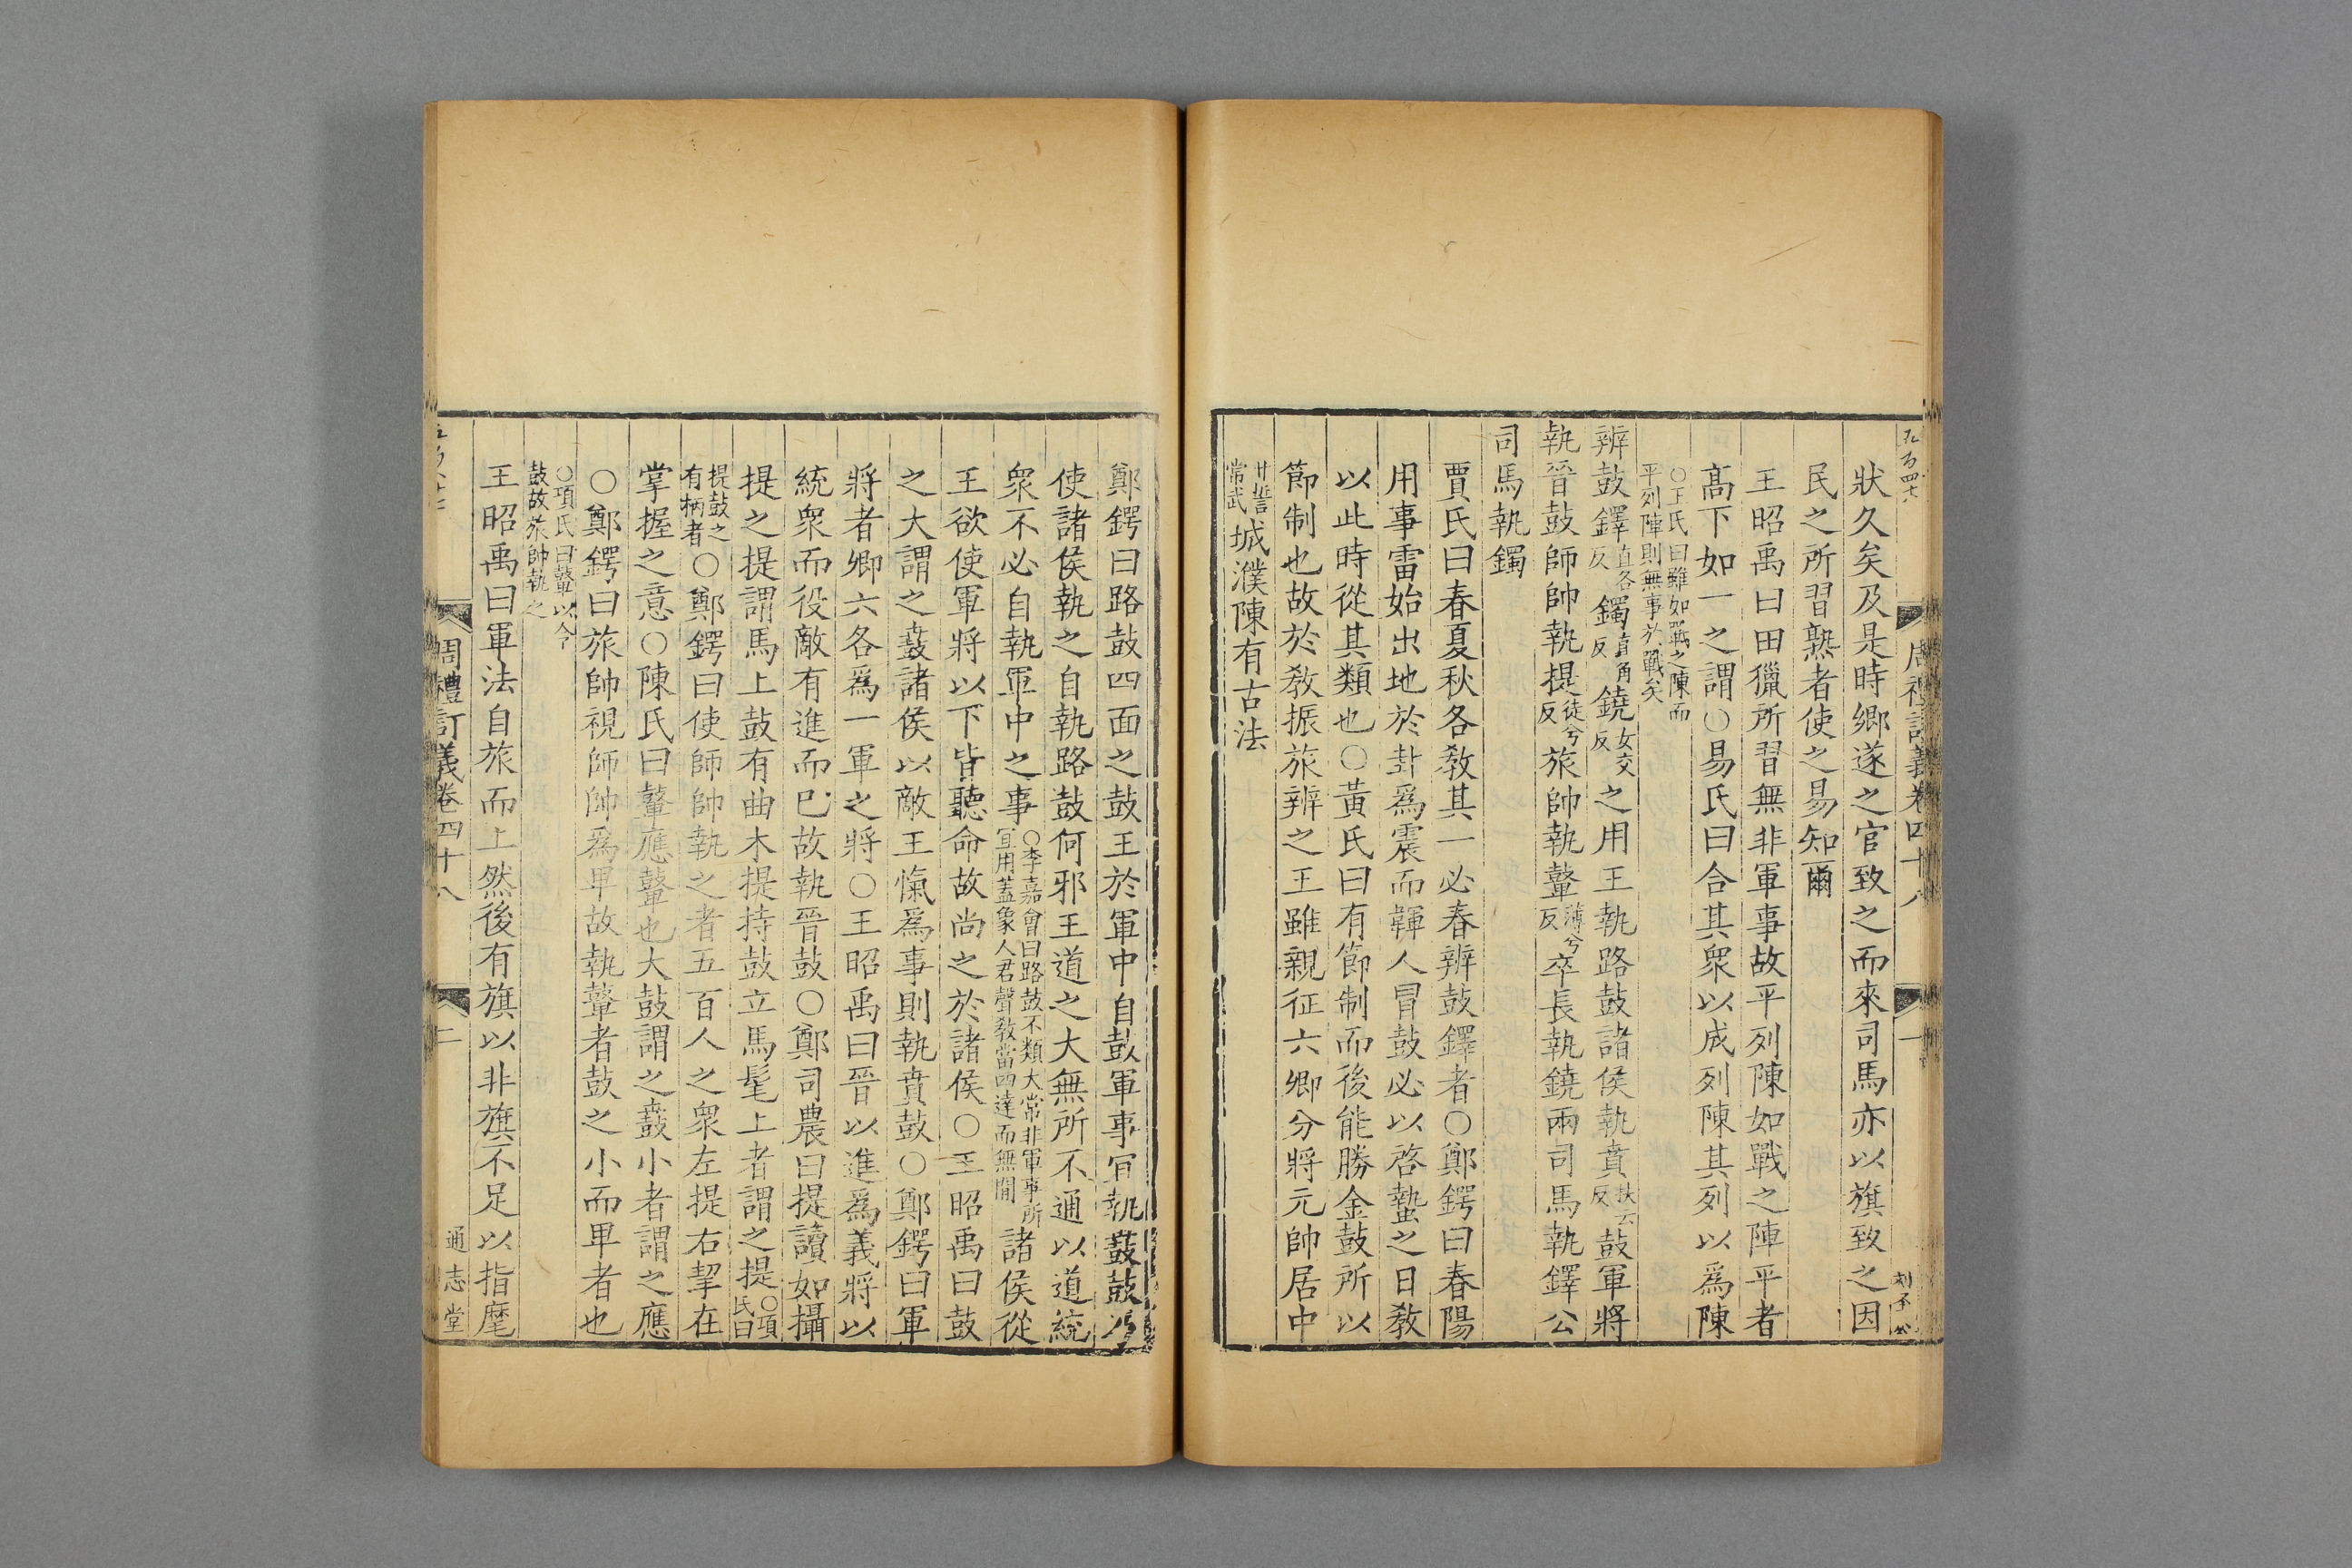 周禮訂義卷四十八
一
狀久矣及是時鄉遂之官致之而來司馬亦以旗致之因
民之所習熟者使之易知爾
王昭禹曰田獵所習無非軍事故平列陳如戰之陣平者
高下如一之謂○易氏曰合其衆以成列陳其列以爲陳
○王氏曰雖如戰之陳而
平列陣則無事於戰矣
辨鼓鐸直各反鐲直角反鐃女交反之用王執路鼓諸侯執賁扶云反鼓軍將
執晉鼓師帥執提徒兮反旅帥執鼙薄兮反卒長執鐃兩司馬執鐸公
司馬執鐲
賈氏曰春夏秋各教其一必春辨鼓鐸者○鄭鍔曰春陽
用事雷始出地於卦爲震而韗人冒鼓必以啓蟄之日教
以此時從其類也○黃氏曰有節制而後能勝金鼓所以
節制也故於教振旅辨之王雖親征六卿分將元帥居中
甘誓
常武城濮陳有古法
鄭鍔曰路鼓四面之鼓王於軍中自鼓軍事宜執鼖鼓
使諸侯執之自執路鼓何邪王道之大無所不通以道統
衆不必自執軍中之事○李嘉會曰路鼓不類大常非軍事所
宜用蓋象人君聲教當四達而無間諸侯從
王欲使軍將以下皆聽命故尚之於諸侯○王昭禹曰鼓
之大謂之鼖諸侯以敵王愾爲事則執賁鼓○鄭鍔曰軍
將者卿六各爲一軍之將○王昭禹曰晉以進爲義將以
統衆而役敵有進而已故執晉鼓○鄭司農曰提讀如攝
提之提謂馬上鼓有曲木提持鼓立馬髦上者謂之提○項氏曰
提鼓之
有柄者○鄭鍔曰使師帥執之者五百人之衆左提右挈在
掌握之意○陳氏曰鼙應鼙也大鼓謂之鼖小者謂之應
○鄭鍔曰旅帥視師帥爲卑故執鼙者鼓之小而卑者也
○項氏曰鼙以令
鼓故旅帥執之
王昭禹曰軍法自旅而上然後有旗以非旗不足以指麾
周禮訂義卷四十八
二
通志堂